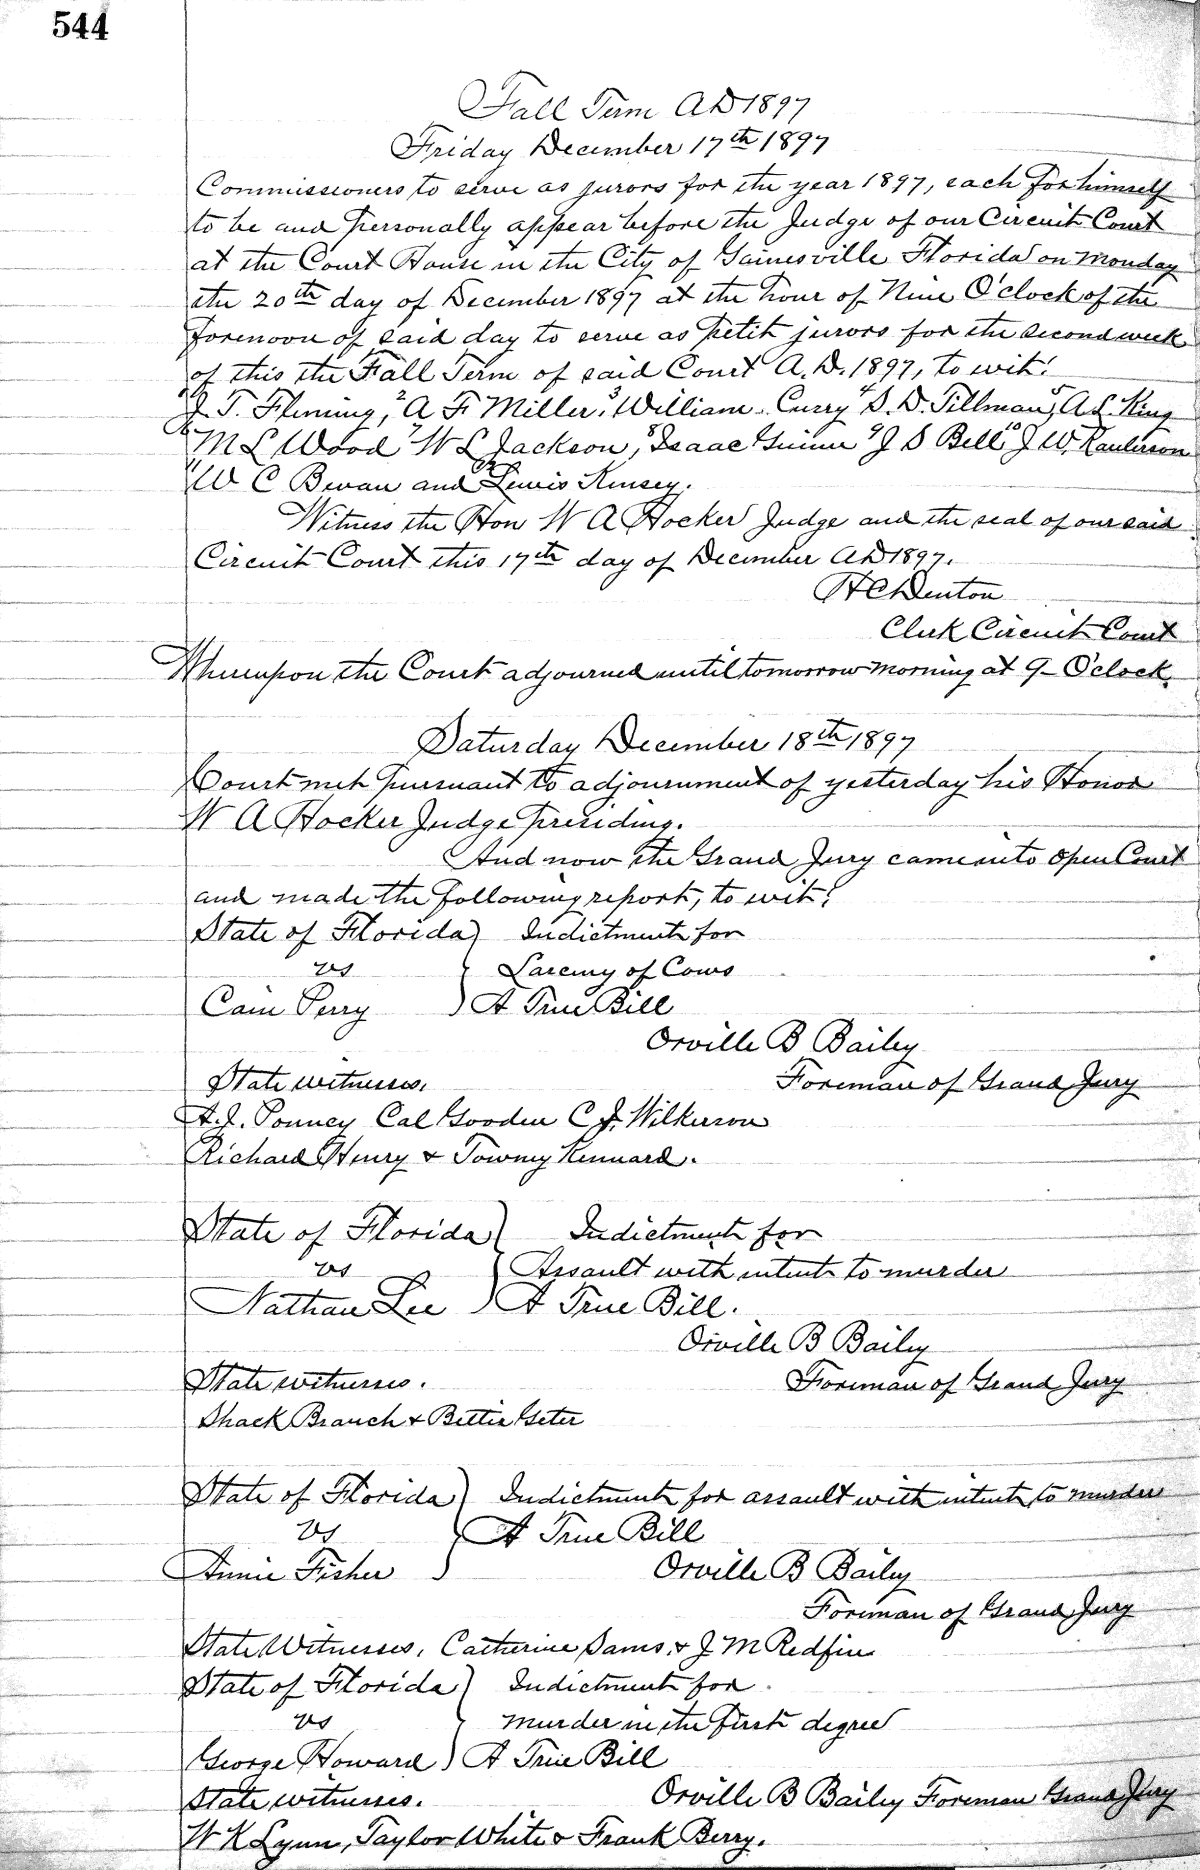 544
Fall Term A.D 1897
Friday December 17th 1897
Commissioners to serve as jurors for the year 1897, each for himself
to be and personally appear before the Judge of our Circuit Court
at the Court House in the City of Gainesville Florida on Monday
the 20th day of December 1897 at the hour of Nine O'clock of the
forenoon of said day to serve as petit jurors for the second week
of this the Fall Term of said Court A.D. 1897, to wit:
J. T. Fleming, 2 A F Miller, 3 William Curry 4 S. D. Tillman, 5 A L. King
6 M L Wood 7 W L Jackson, 8 Isaac 9 J S Bell, 10 J W.
11 W C Bevan and 12 Lewis Kinsey.
Witness the Hon W A Hocker Judge and the seal of our said
Circuit Court this 17th day of December A.D 1897.
H C Denton
Clerk Circuit Court
Whereupon the Court adjourned until tomorrow morning at 9- O'clock.
Saturday December 18th 1897
Court met pursuant to adjournment of yesterday his Honor
W A Hocker Judge presiding.
And now the Grand Jury came into open Court
and made the following report, to wit:
State of Florida ) Indictment for
vs } Larceny of Cows
Cain Perry ) A True Bill
Orville B Bailey
State witnesses. Foreman of Grand Jury
A. J. Cal Gooden C J. Wilkerson
Richard Henry & Kennard.
State of Florida ) Indictment for
vs } Assault with intent to murder
Nathan Lee ) A True Bill.
Orville B Bailey
State witnesses. Foreman of Grand Jury
Shack Branch & Bettie Geter
State of Florida ) Indictment for assault with intent to murder
vs } A True Bill
Annie Fisher ) Orville B Bailey
Foreman of Grand Jury
State Witnesses, Catherine Sams, & J M Redfin
State of Florida ) Indictment for
vs } murder in the first degree
George Howard ) A True Bill
State witnesses. Orville B Bailey Foreman Grand Jury
W K Lynn, Taylor White & Frank Berry.